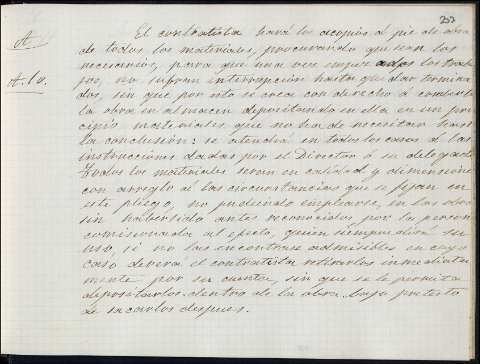 253
A El contratista hará los acopios al pie de obra
de todos los materiales, procurando que sean los
A. l. v. necesarios, para que una vez empezados los traba-
jos, no sufran interrupción hasta quedar termina-
dos, sin que por esto se crea con derecho á convertir
la obra en almacen depositando en ella en un prin-
cipio materiales que no sea de necesitar hasta
la conclusión: se atendrá en todos los casos á las
instrucciones dadas por el Director ó su delegado
Todos los materiales serán en calidad y dimensiones
con arreglo á las circunstancias que se fijan en
este pliego, no pudiendo emplearse, en las obras
sin haber sido antes reconocidos por la persona
comisionada al efecto, quien siempre dirá su
uso, si no las encontrase admisibles en cuyo
caso deverá el contratista retirarlos inmediata-
mente por su cuenta, sin que se le permita
depositarlos dentro de la obra bajo pretesto
de sacarlos despues.